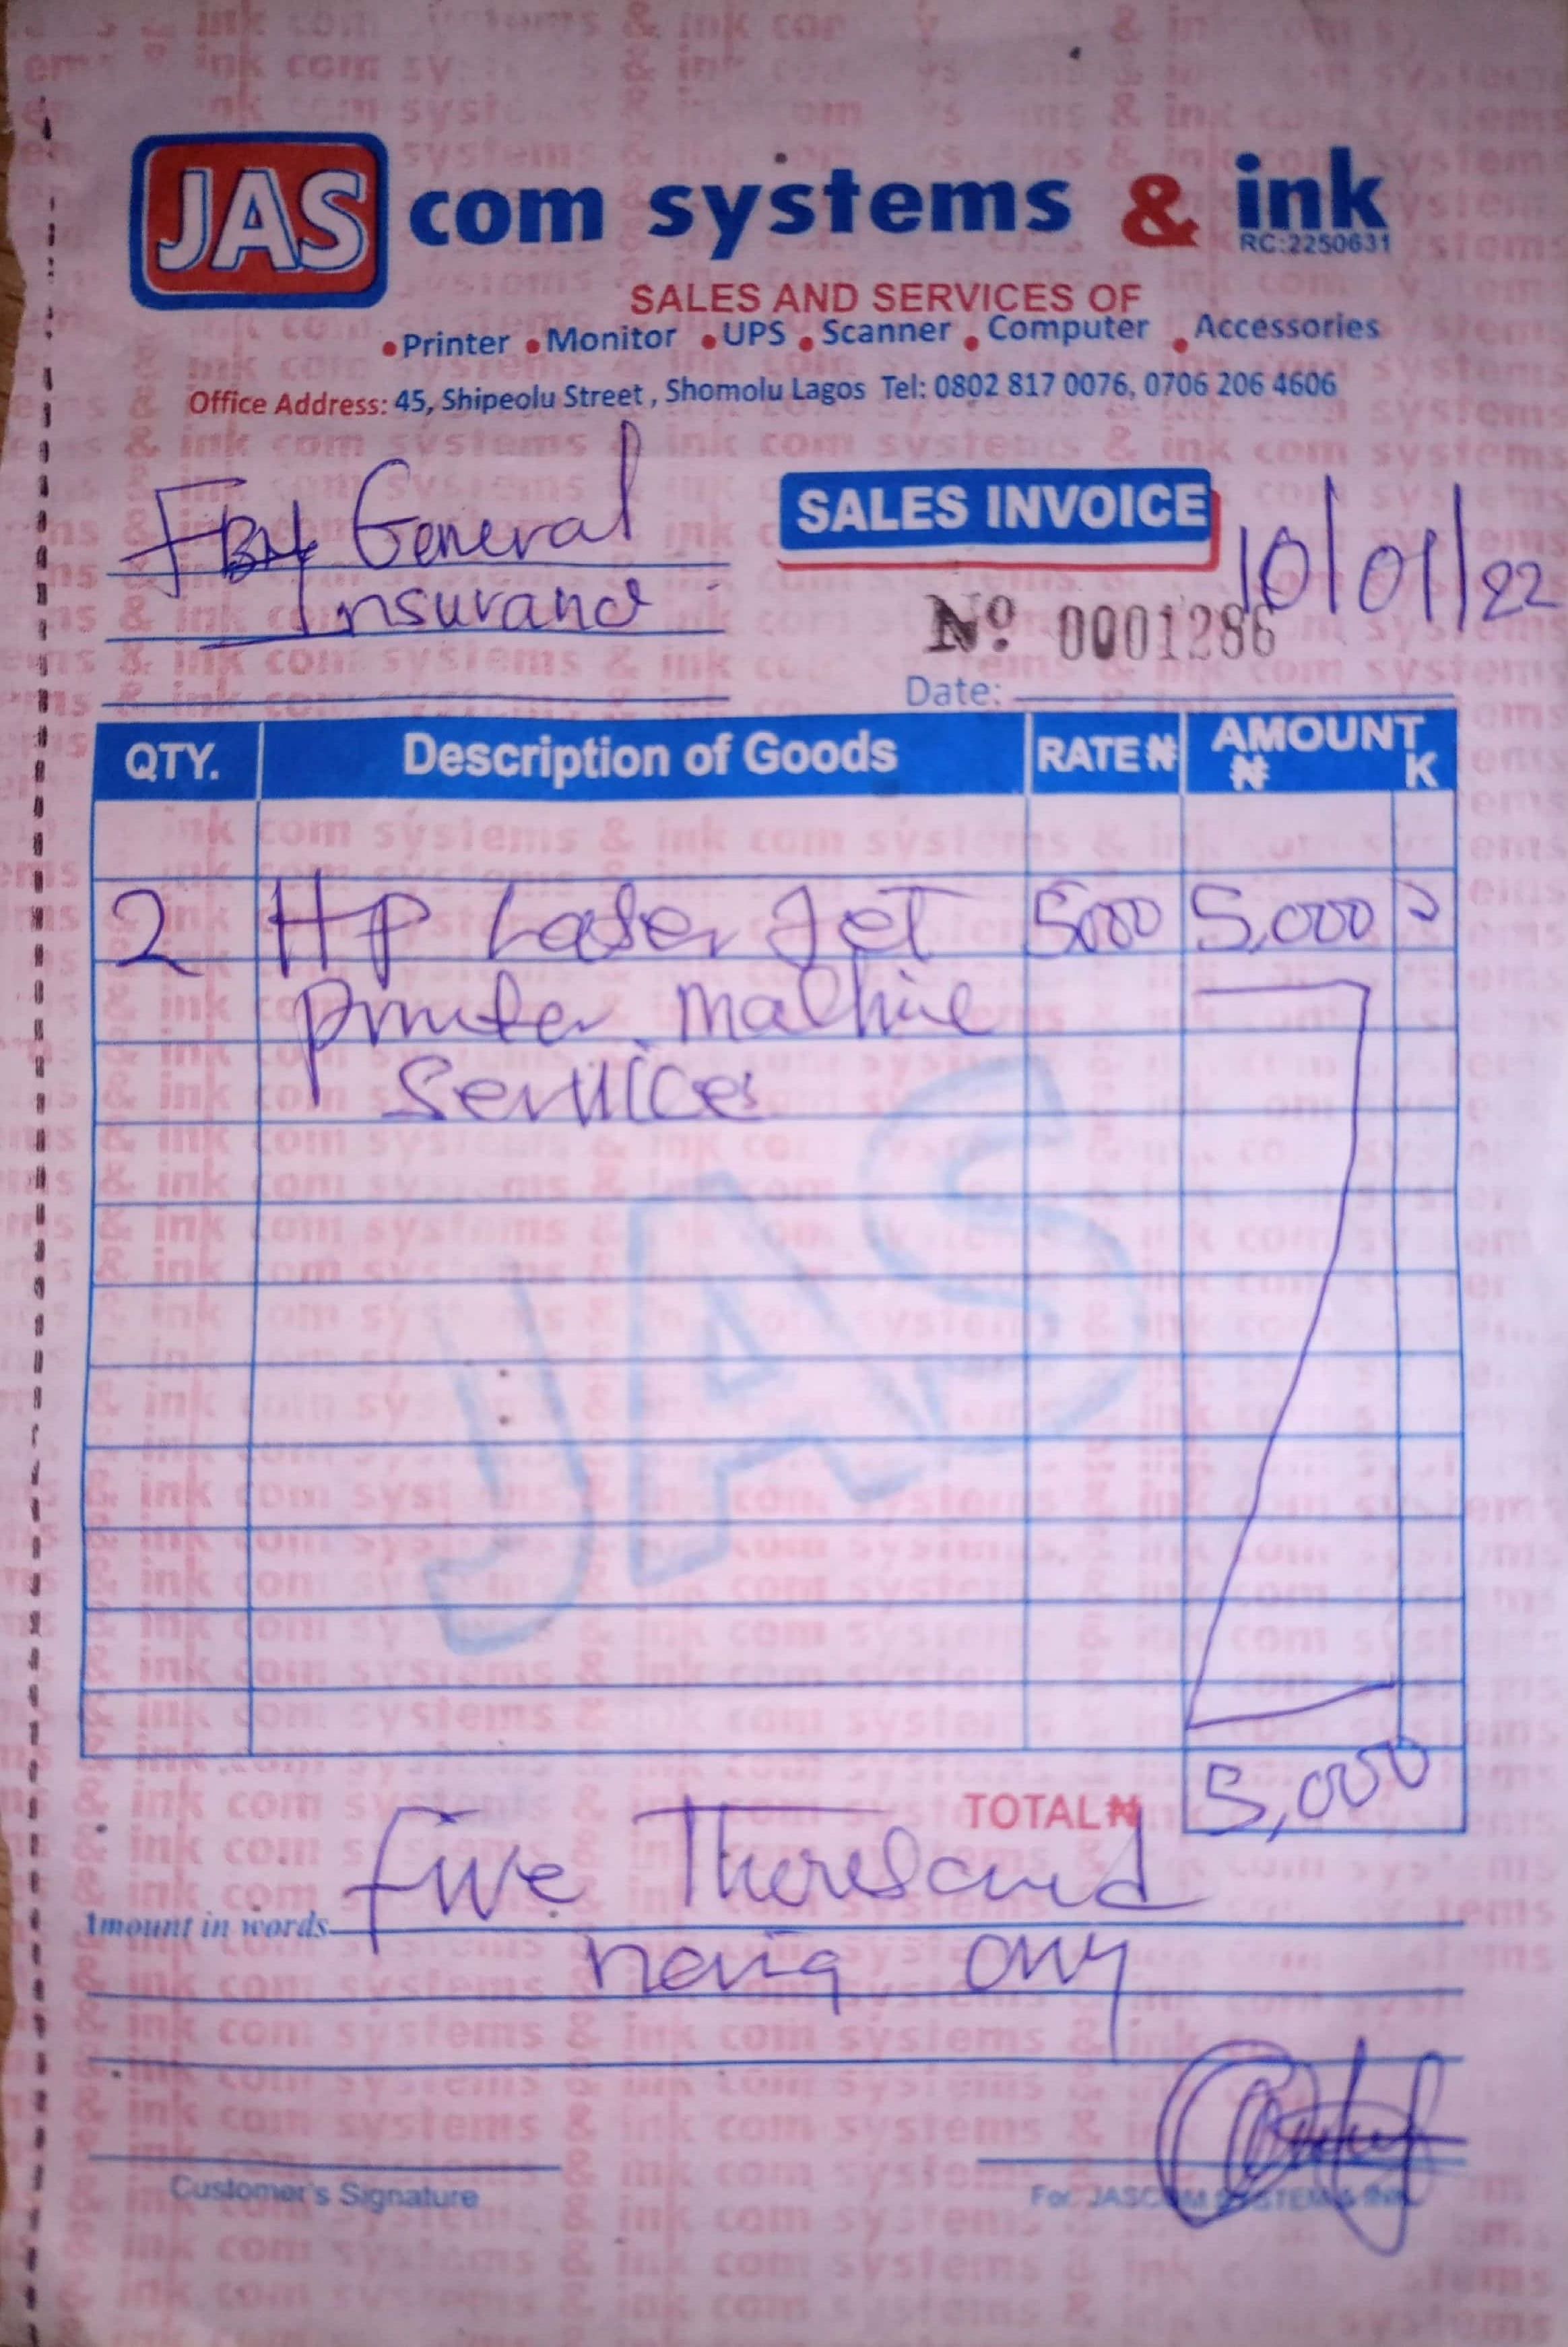 JAS com systems & ink
RC:2250631
SALES AND SERVICES OF
•Printer •Monitor •UPS •Scanner •Computer •Accessories
Office Address: 45, Shipeolu Street, Shomolu Lagos Tel: 0802 817 0076, 0706 206 4606
FBN General
Insurance
SALES INVOICE
10/01/22
Nº 0001286
Date:
QTY. Description of Goods RATE ₦ AMOUNT ₦ K
2 HP LaserJet 5000 5,000
printer machine
Services
JAS
TOTAL ₦ 5,000
Amount in words Five Thousand
naira only
Customer's Signature
For JASCOM SYSTEM & INK